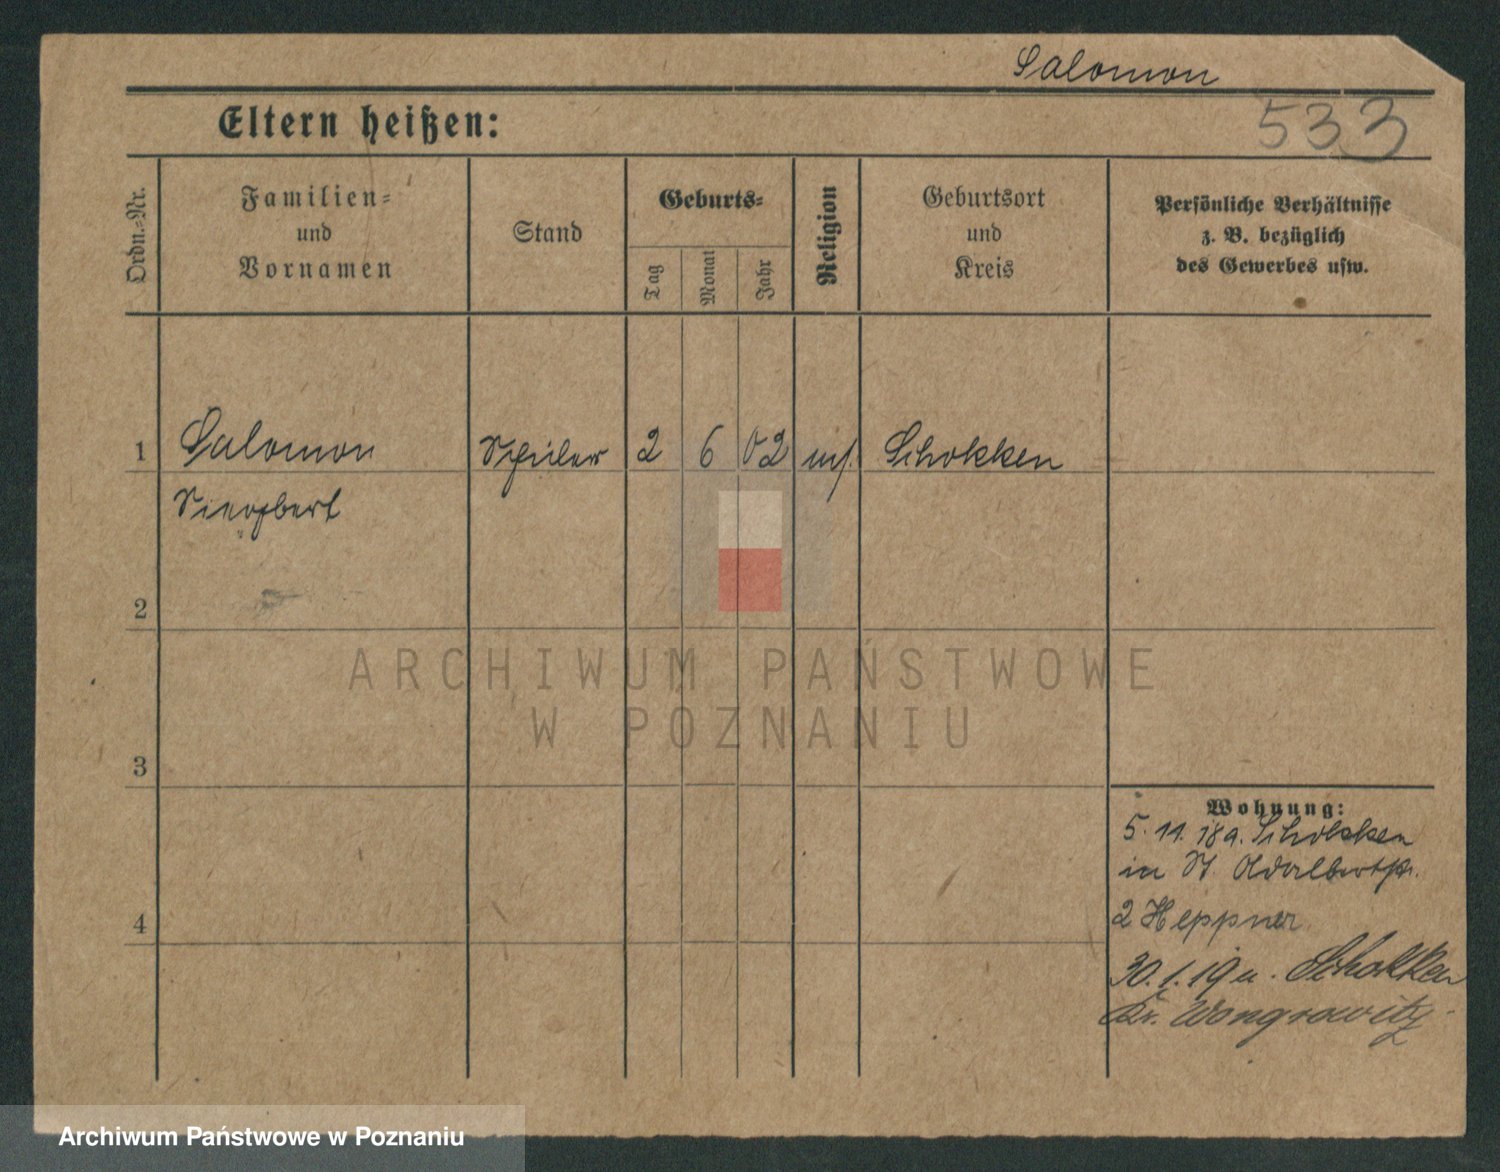 Salomon
533
Eltern heißen:
Ordn.-Nr.
Familien-
und
Vornamen
Stand
Geburts-
Tag
Monat
Jahr
Religion
Geburtsort
und
Kreis
Persönliche Verhältnisse
z. B. bezüglich
des Gewerbes usw.
1 Salomon Schüler 2 6 02 mos. Schokken
Siegbert
2
3
4
Wohnung:
5. 11. 18 a. Schokken
in St. Adalbertstr.
2 Heppner
30. 1. 19 n. Schokken
Kr. Wongrowitz
ARCHIWUM PAŃSTWOWE
W POZNANIU
Archiwum Państwowe w Poznaniu